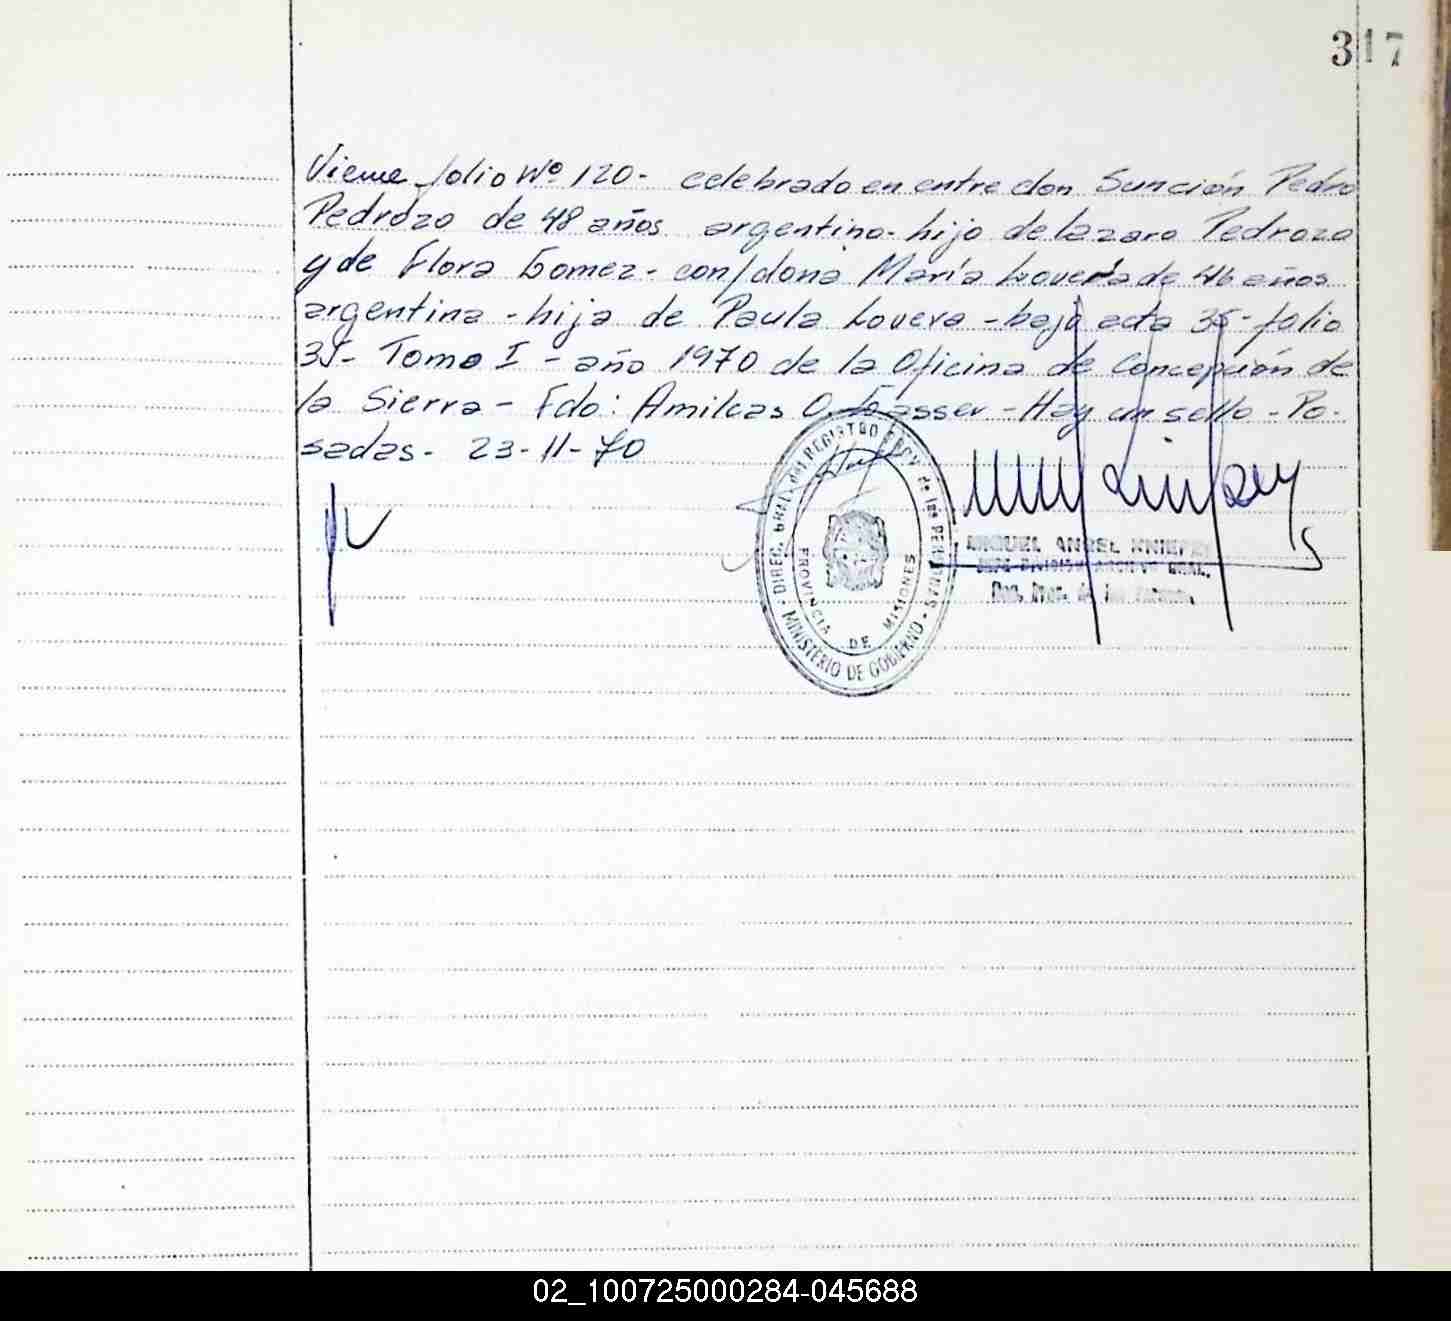 317
Viene folio Nº 120- celebrado en entre don Sunción Pedro
Pedrozo de 48 años argentino- hijo de Lazaro Pedrozo
y de Flora Gomez- con/dona María Lovera de 46 años
argentina - hija de Paula Lovera - bajo acta 35- folio
35- Tomo I - año 1970 de la Oficina de Concepción de
la Sierra - Fdo: Amilcas O. - Hay un sello - Po-
sadas- 23-11-70
DIREC. GRAL. del REGISTRO PROV. de las PERSONAS
MINISTERIO DE GOBIERNO
PROVINCIA DE MISIONES
MIGUEL ANGEL
JEFE DIVISION ARCHIVO GRAL.
02_100725000284-045688